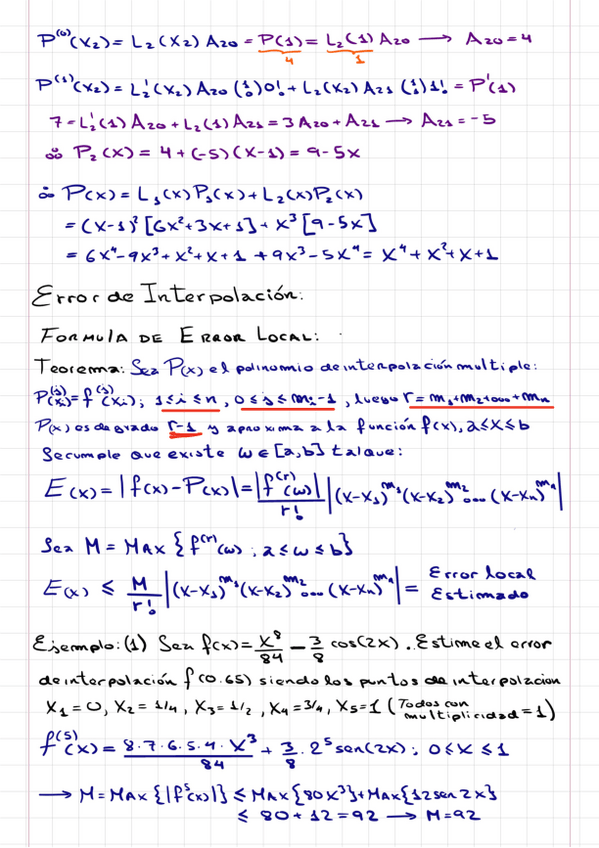 P⁽⁰⁾(x₂) = L₂(x₂) A₂₀ = P(1) = L₂(1) A₂₀ → A₂₀ = 4
4 1
P⁽¹⁾(x₂) = L₂'(x₂) A₂₀ (¹₀) 0! + L₂(x₂) A₂₁ (¹₁) 1! = P'(1)
7 = L₂'(1) A₂₀ + L₂(1) A₂₁ = 3A₂₀ + A₂₁ → A₂₁ = -5
∴ P₂(x) = 4 + (-5)(x-1) = 9-5x
∴ P(x) = L₁(x)P₁(x) + L₂(x)P₂(x)
= (x-1)² [6x²+3x+1] + x³ [9-5x]
= 6x⁴-9x³+x²+x+1 +9x³-5x⁴ = x⁴+x²+x+1
Error de Interpolación:
FORMULA DE ERROR LOCAL:
Teorema: Sea P(x) el polinomio de interpolación multiple:
P⁽ʲ⁾(xᵢ) = f⁽ʲ⁾(xᵢ); 1≤i≤n, 0≤j≤mᵢ-1, luego r = m₁+m₂+...+mₙ
P(x) es de grado r-1 y aproxima a la función f(x), a≤x≤b
Se cumple que existe w ∈ [a,b] tal que:
E(x) = |f(x)-P(x)| = |f⁽ʳ⁾(w)|/r! |(x-x₁)^m₁ (x-x₂)^m₂ ... (x-xₙ)^mₙ|
Sea M = MAX {f⁽ʳ⁾(w); a≤w≤b}
E(x) ≤ M/r! |(x-x₁)^m₁ (x-x₂)^m₂ ... (x-xₙ)^mₙ| = Error local Estimado
Ejemplo: (1) Sea f(x) = x⁸/84 - 3/8 cos(2x). Estime el error
de interpolación f(0.65) siendo los puntos de interpolacion
x₁ = 0, x₂ = 1/4, x₃ = 1/2, x₄ = 3/4, x₅ = 1 (Todos con multiplicidad = 1)
f⁽⁵⁾(x) = 8·7·6·5·4·x³/84 + 3/8 · 2⁵ sen(2x); 0≤x≤1
→ M = MAX {|f⁵(x)|} ≤ MAX {80x³} + MAX {12 sen 2x}
≤ 80 + 12 = 92 → M = 92